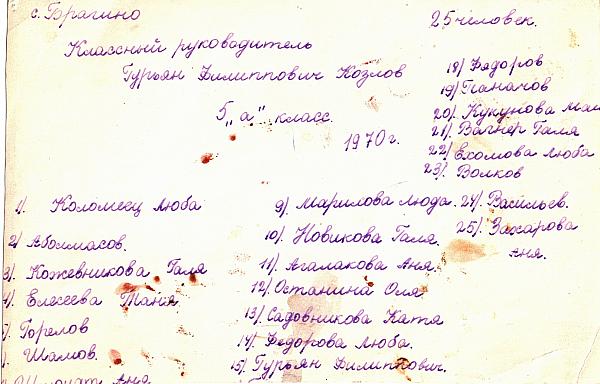 с. Брагино
25 человек.
Классный руководитель
Гурьян Филиппович Козлов
5 "а" класс.
1970 г.
1/. Коломеец Люба
2/ Аболмасов.
3/. Кожевникова Галя
4/ Елесеева Таня
Горелов
Шамов.
Аня
9/. Марилова Люда.
10/. Новикова Галя.
11/. Агалакова Аня.
12/. Останина Оля
13/. Садовникова Катя
14/. Федорова Люба.
15/. Гурьян Филиппович.
18/ Фядоров
19/ Паначов
20/ Кукунова
21/. Вагнер Галя
22/ Ехомова Люба
23/. Волков
24/. Васильев.
25/. Захарова
Аня.